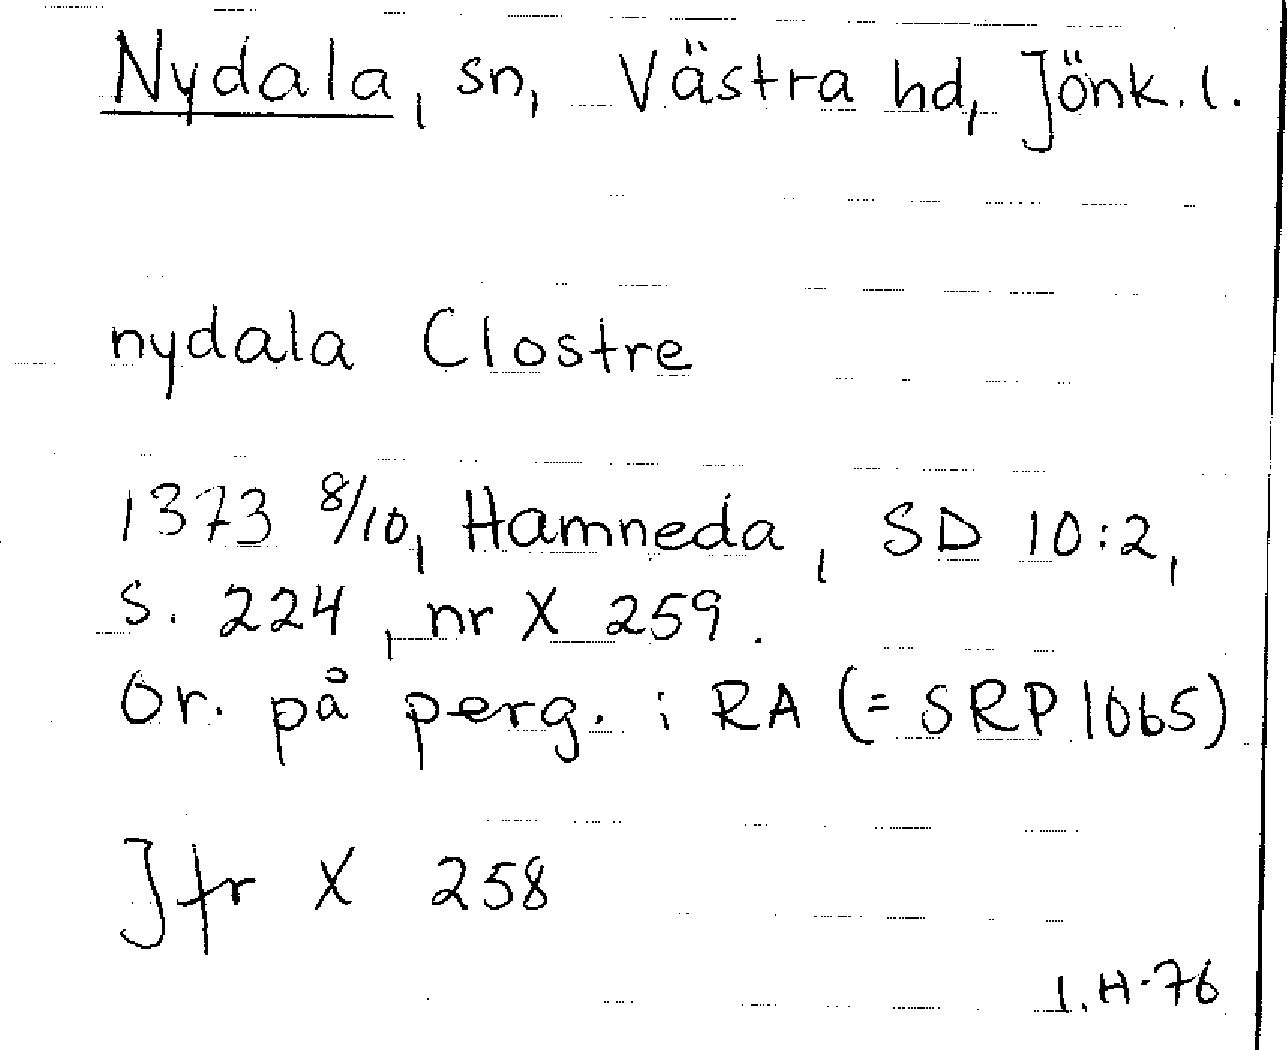 Nydala, sn, Västra hd, Jönk. l.
nydala Clostre
1373 8/10, Hamneda, SD 10:2,
s. 224, nr X 259.
Or. på perg. i RA (= SRP 1065)
Jfr X 258
I. H-76